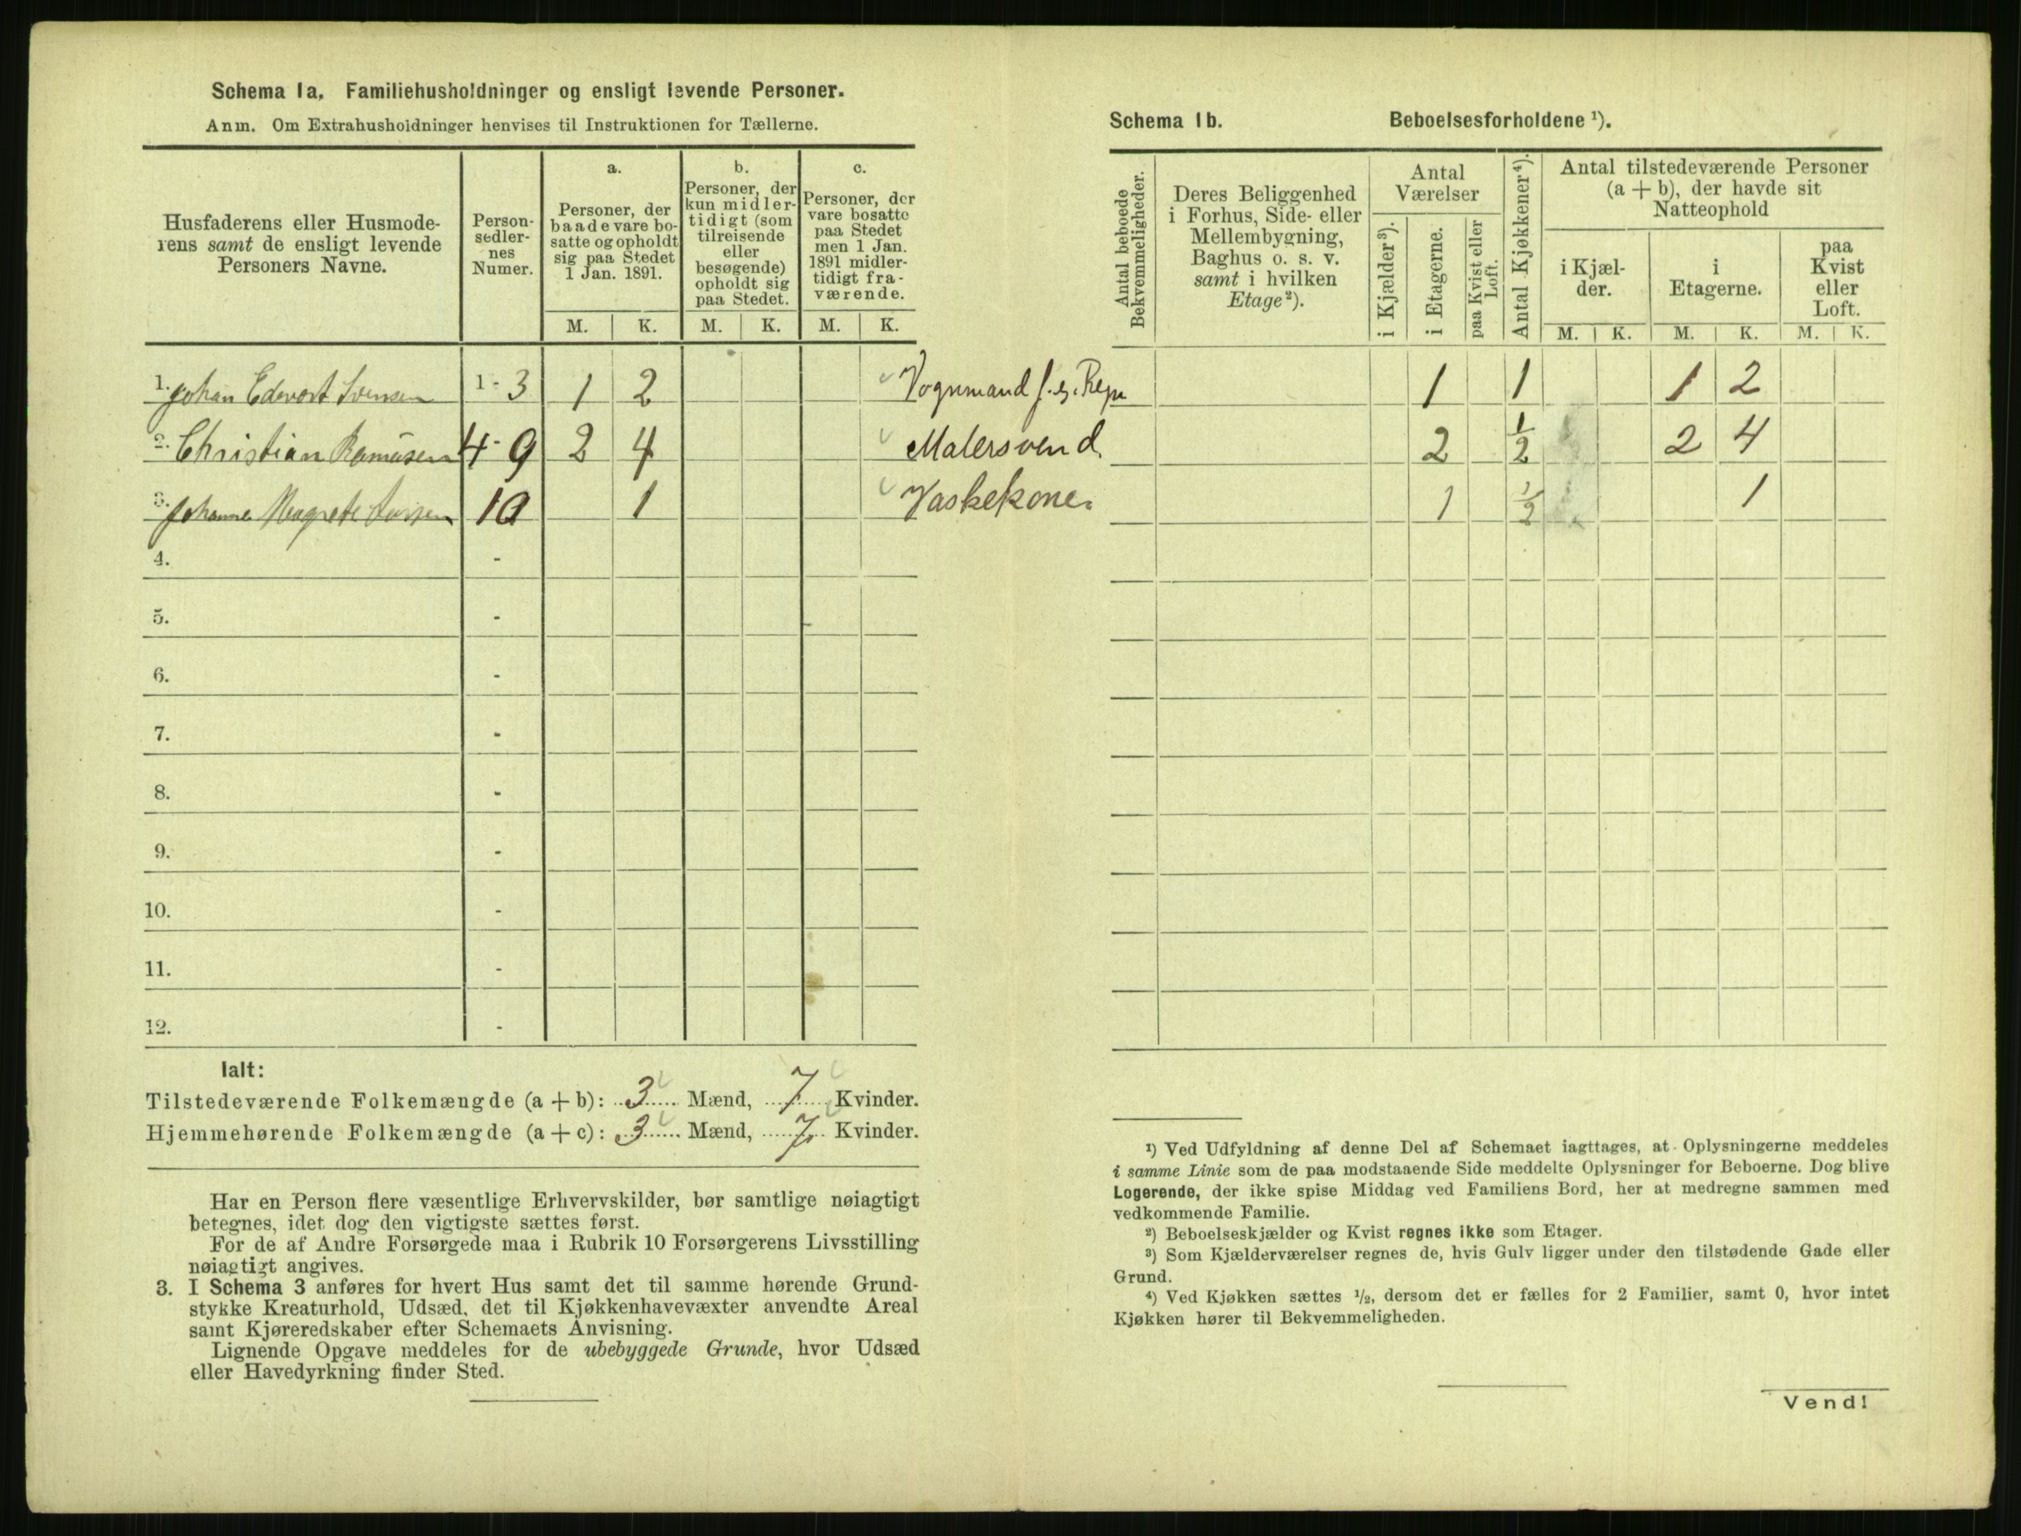 Schema 1a. Familiehusholdninger og ensligt levende Personer.
Anm. Om Extrahusholdninger henvises til Instruktionen for Tællerne.
Husfaderens eller Husmode-
rens samt de ensligt levende
Personers Navne.
Person-
sedler-
nes
Numer.
a.
Personer, der
baade vare bo-
satte og opholdt
sig paa Stedet
1 Jan. 1891.
b.
Personer, der
kun midler-
tidigt (som
tilreisende
eller
besøgende)
opholdt sig
paa Stedet.
c.
Personer, der
vare bosatte
paa Stedet
men 1 Jan.
1891 midler-
tidigt fra-
værende.
M. K. M. K. M. K.
1. Johan Edevart Svensen 1 - 3 1 2 Vognmand f. e. Regn
2. Christian Ramusen 4 - 9 2 4 Malersvend.
3. Johanne Magrete 10 1 Vaskekone.
4. -
5. -
6. -
7. -
8. -
9. -
10. -
11. -
12. -
Ialt:
Tilstedeværende Folkemængde (a + b): 3 Mænd, 7 Kvinder.
Hjemmehørende Folkemængde (a + c): 3 Mænd, 7 Kvinder.
Har en Person flere væsentlige Erhvervskilder, bør samtlige nøiagtigt
betegnes, idet dog den vigtigste sættes først.
For de af Andre Forsørgede maa i Rubrik 10 Forsørgerens Livsstilling
nøiagtigt angives.
3. I Schema 3 anføres for hvert Hus samt det til samme hørende Grund-
stykke Kreaturhold, Udsæd, det til Kjøkkenhavevæxter anvendte Areal
samt Kjøreredskaber efter Schemaets Anvisning.
Lignende Opgave meddeles for de ubebyggede Grunde, hvor Udsæd
eller Havedyrkning finder Sted.
Schema 1b. Beboelsesforholdene ¹).
Antal beboede
Bekvemmeligheder.
Deres Beliggenhed
i Forhus, Side- eller
Mellembygning,
Baghus o. s. v.
samt i hvilken
Etage ²).
Antal
Værelser
i Kjælder ³).
i Etagerne.
paa Kvist eller
Loft.
Antal Kjøkkener ⁴).
Antal tilstedeværende Personer
(a + b), der havde sit
Natteophold
i Kjæl-
der.
i
Etagerne.
paa
Kvist
eller
Loft.
M. K. M. K. M. K.
1 1 1 2
2 1/2 2 4
1 1/2 1
¹) Ved Udfyldning af denne Del af Schemaet iagttages, at Oplysningerne meddeles
i samme Linie som de paa modstaaende Side meddelte Oplysninger for Beboerne. Dog blive
Logerende, der ikke spise Middag ved Familiens Bord, her at medregne sammen med
vedkommende Familie.
²) Beboelseskjælder og Kvist regnes ikke som Etager.
³) Som Kjælderværelser regnes de, hvis Gulv ligger under den tilstødende Gade eller
Grund.
⁴) Ved Kjøkken sættes ½, dersom det er fælles for 2 Familier, samt 0, hvor intet
Kjøkken hører til Bekvemmeligheden.
Vend!